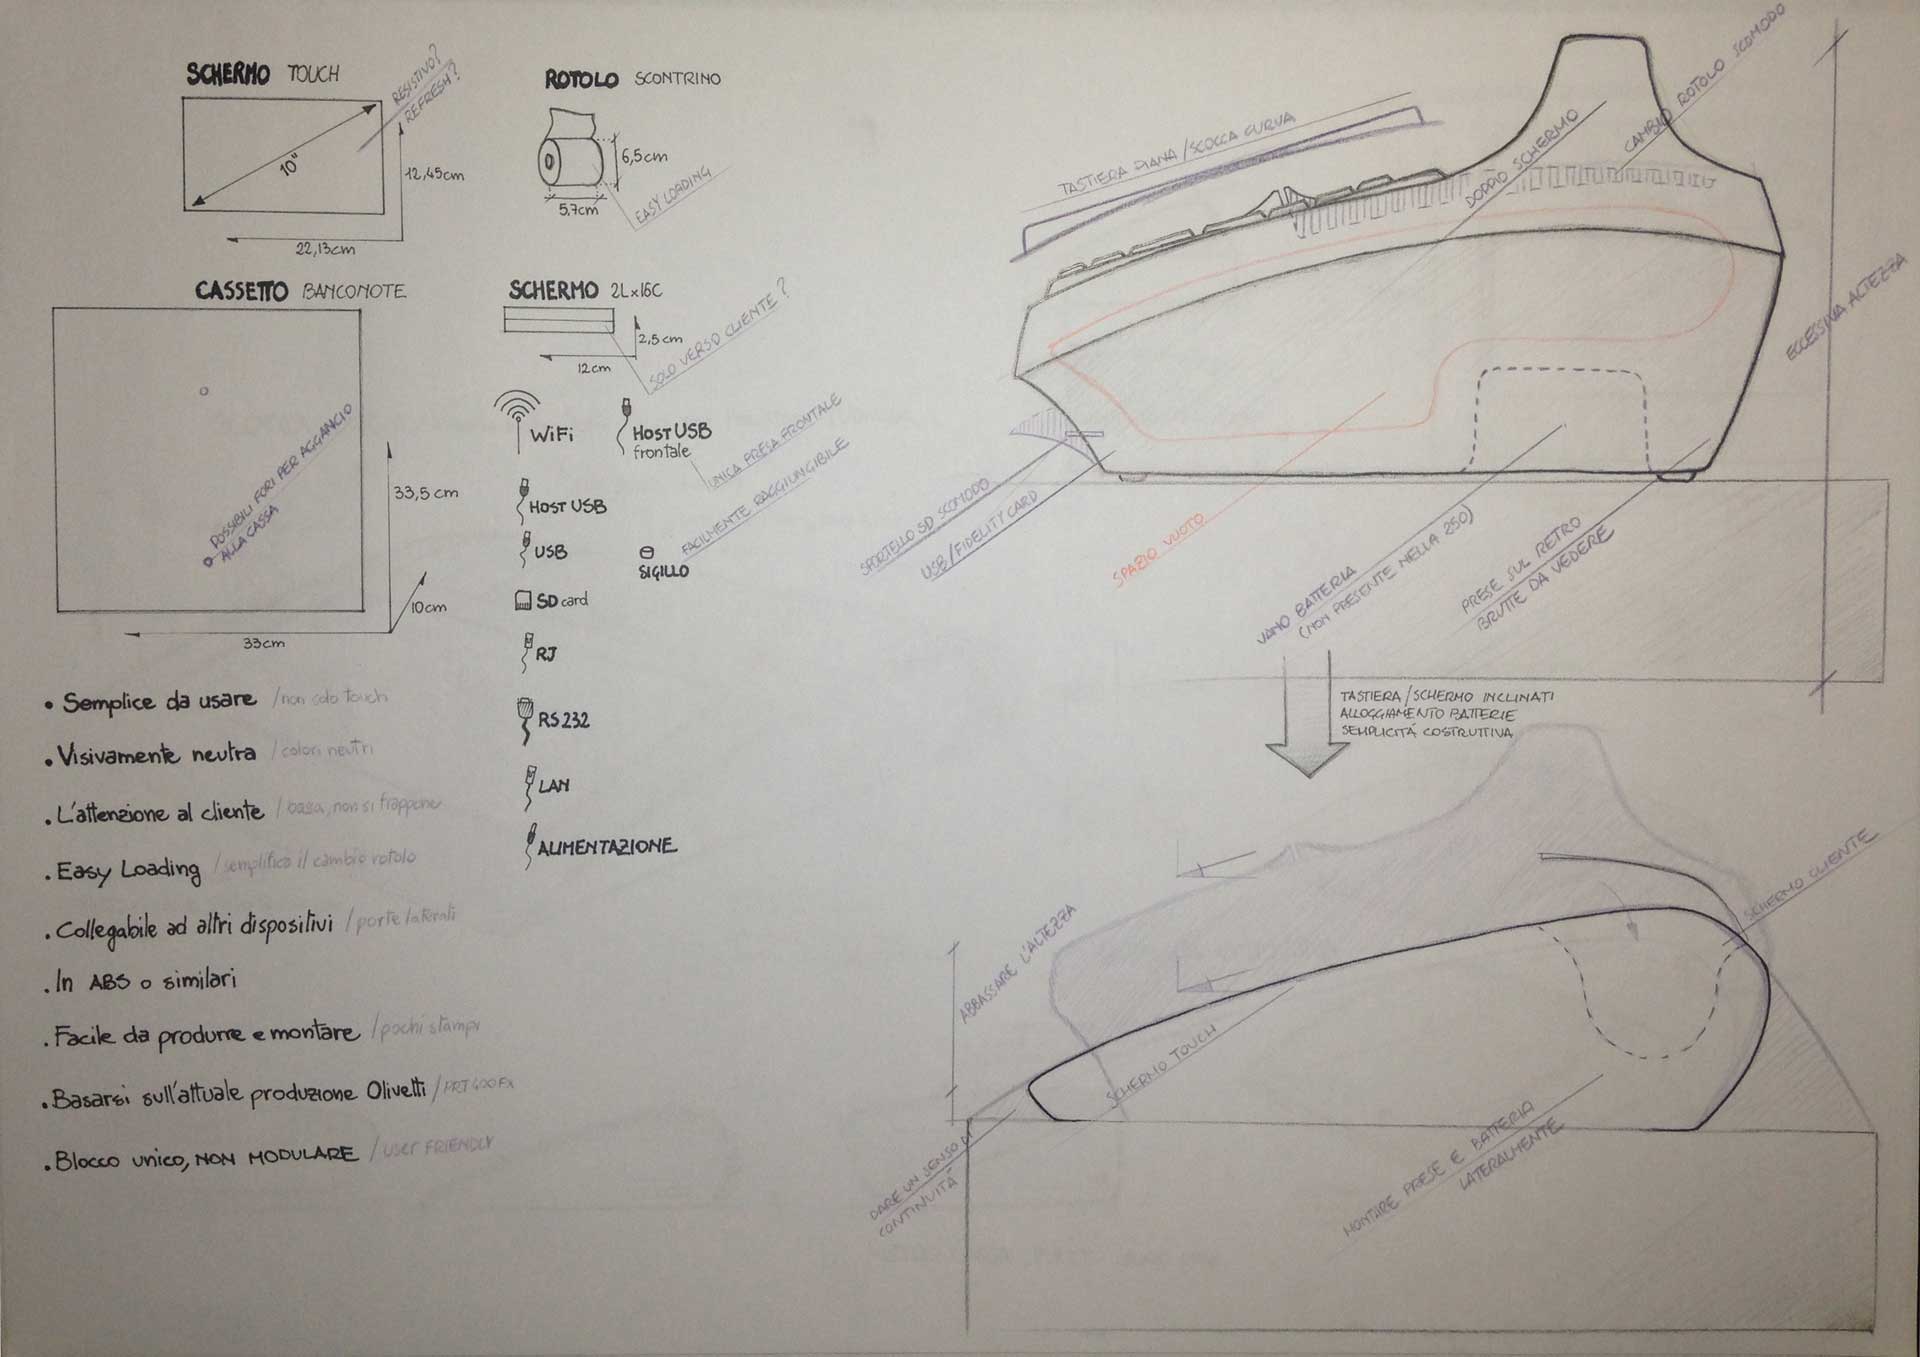 SCHERMO TOUCH
RESISTIVO?
REFRESH?
10"
12,45cm
22,13cm
ROTOLO SCONTRINO
6,5cm
5,7cm
EASY LOADING
CASSETTO BANCONOTE
POSSIBILI FORI PER AGGANCIO
ALLA CASSA
33,5cm
10cm
33cm
SCHERMO 2Lx16C
2,5cm
12cm
SOLO VERSO CLIENTE?
WiFi
HOST USB
frontale
UNICA PRESA FRONTALE
FACILMENTE RAGGIUNGIBILE
HOST USB
USB
SIGILLO
SD card
RJ
RS 232
LAN
ALIMENTAZIONE
• Semplice da usare /non solo touch
• Visivamente neutra /colori neutri
• L'attenzione al cliente /bassa, non si frappone
• Easy Loading /semplifico il cambio rotolo
• Collegabile ad altri dispositivi /porte laterali
• In ABS o similari
• Facile da produrre e montare /pochi stampi
• Basarsi sull'attuale produzione Olivetti /PRT400FX
• Blocco unico, NON MODULARE /USER FRIENDLY
TASTIERA PIANA/SCOCCA CURVA
DOPPIO SCHERMO
CAMBIO ROTOLO SCOMODO
ECCESSIVA ALTEZZA
SPORTELLO SD SCOMODO
USB/FIDELITY CARD
SPAZIO VUOTO
VANO BATTERIA
(NON PRESENTE NELLA 250)
PRESE SUL RETRO
BRUTTE DA VEDERE
TASTIERA/SCHERMO INCLINATI
ALLOGGIAMENTO BATTERIE
SEMPLICITÁ COSTRUTTIVA
ABBASSARE L'ALTEZZA
SCHERMO CLIENTE
SCHERMO TOUCH
DARE UN SENSO DI
CONTINUITÀ
MONTARE PRESE E BATTERIA
LATERALMENTE